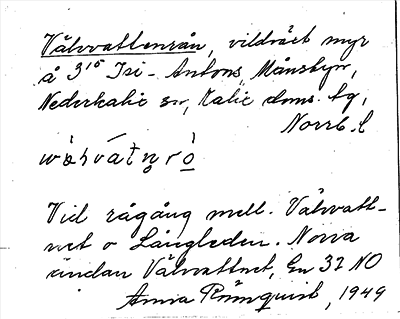 Välvvattensrån, vildväxt myr
å 3¹⁰ Isi-Antons, Månsbyn,
Nederkalix sn, Kalix doms. tg,
Norrb. l
Vid rågång mell. Välvvatt-
net o Långleden. Norra
ändan Välvvattnet, En 32 NO
Anna Rönnquist, 1949